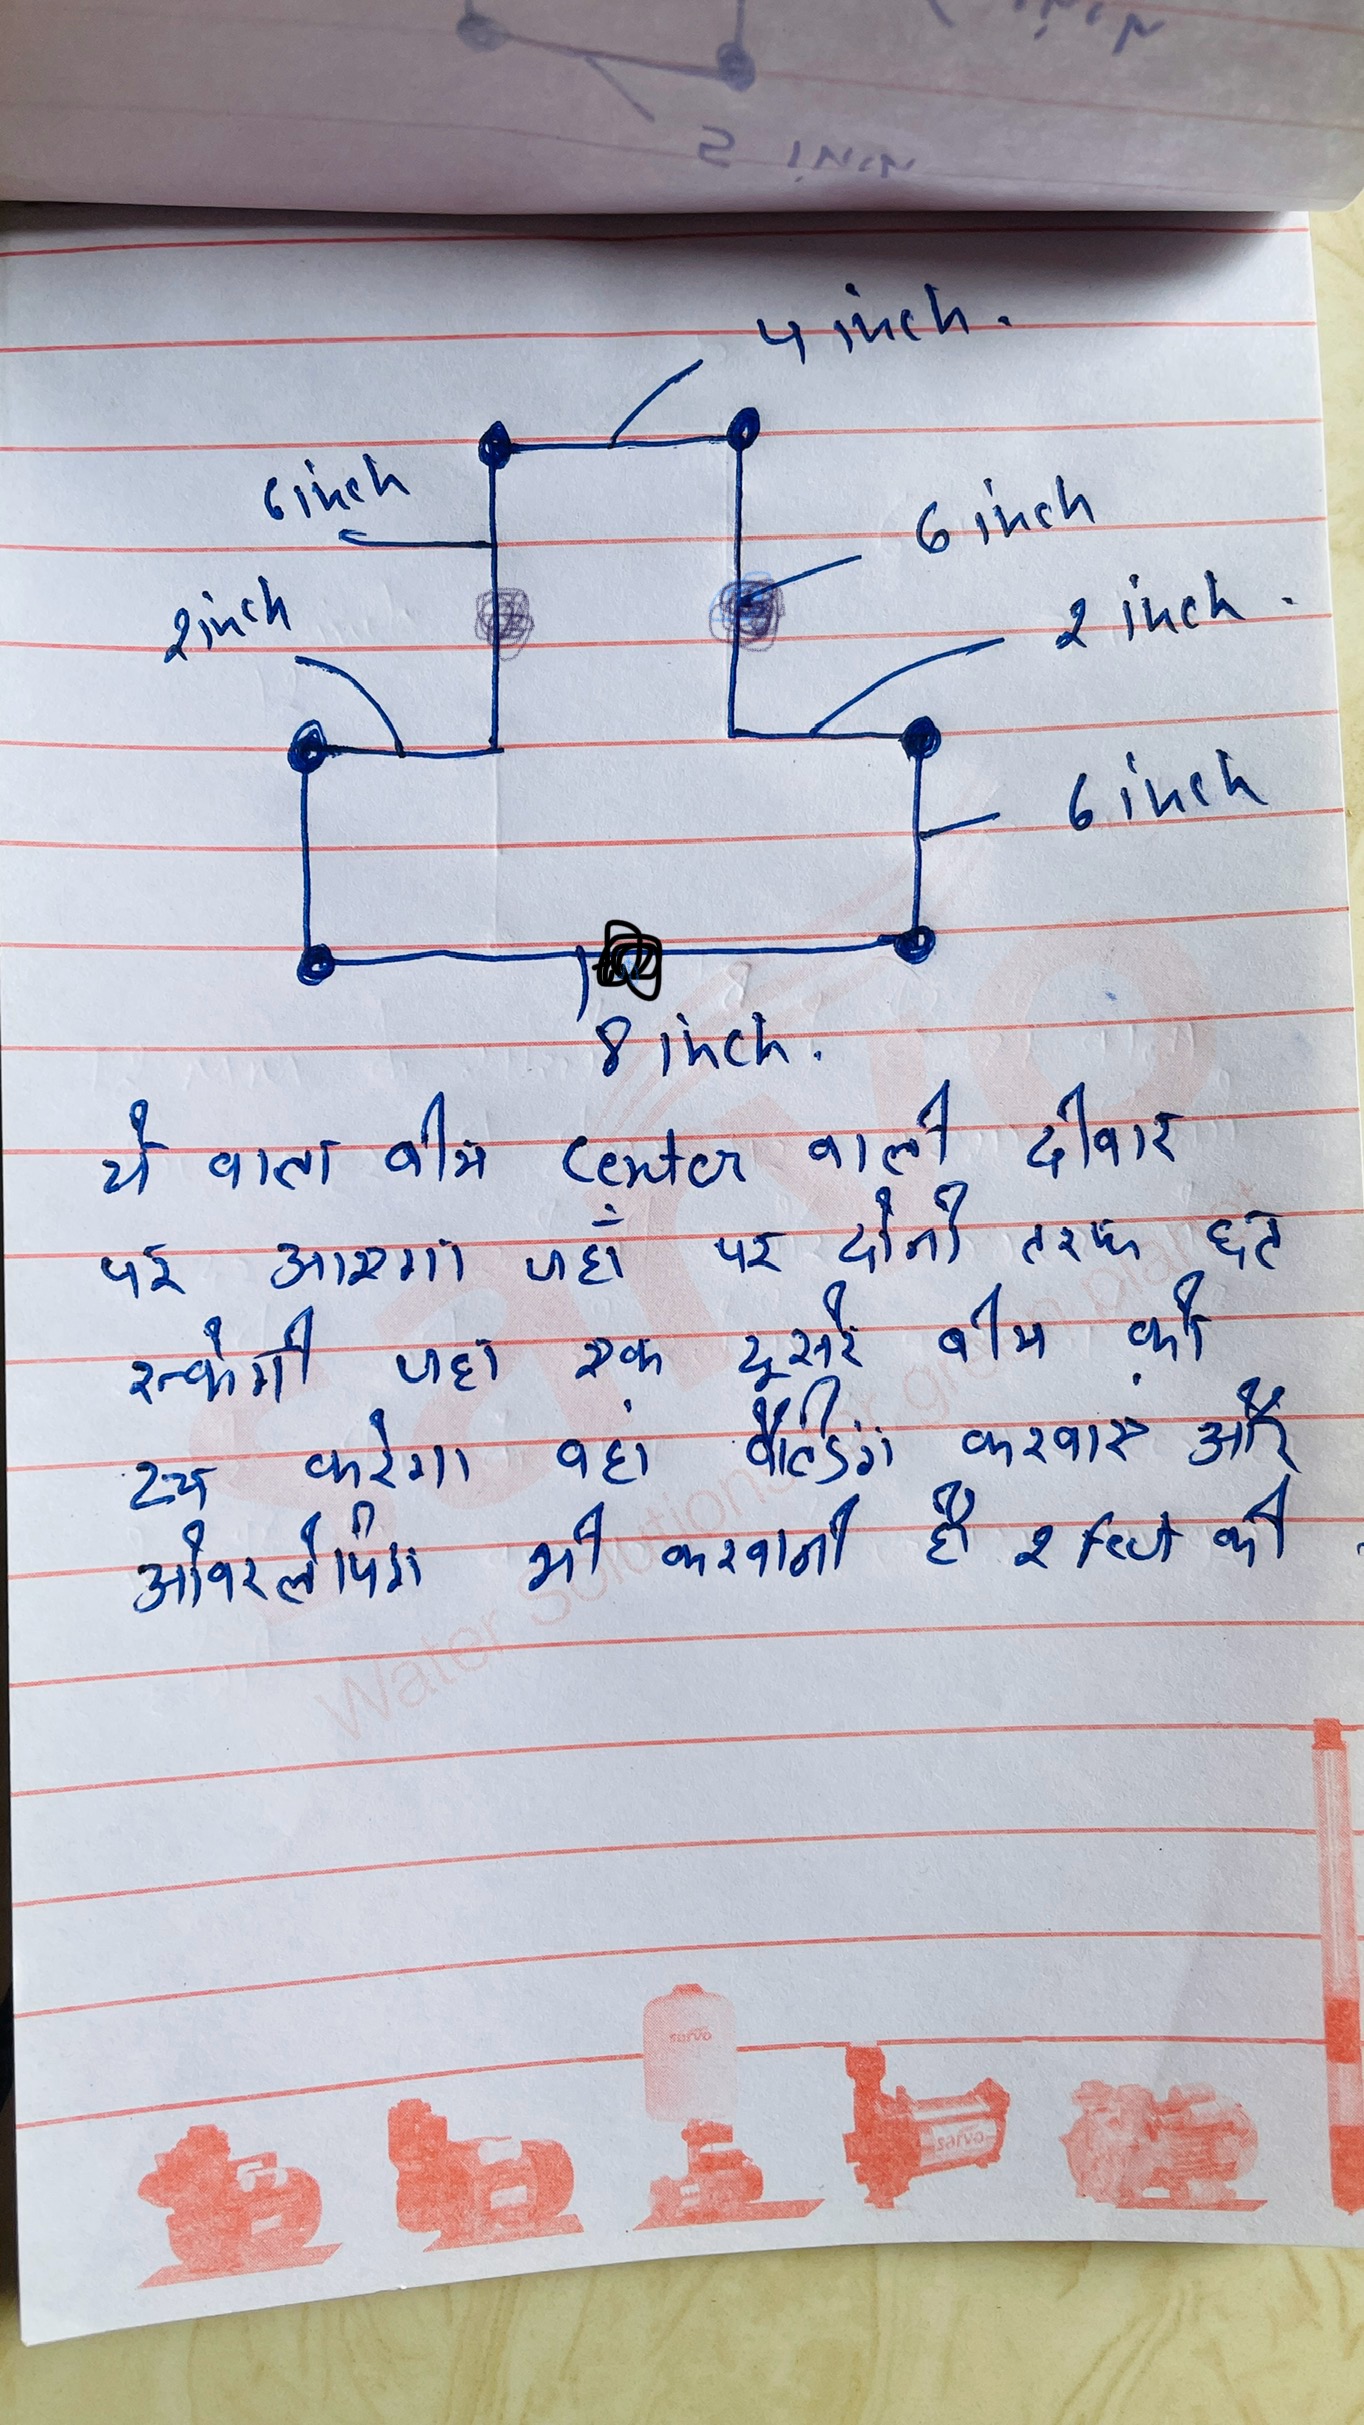 4 inch.
6 inch
6 inch
2 inch
2 inch.
6 inch
8 inch.
ये वाला बीम center वाली दीवार
पर आएगा जहाँ पर दोनो तरफ छत
रुकेगी जहा एक दूसरे बीम को
टच करेगा वहां वैल्डिंग करवाए और
ओवरलेपिंग भी करवानी है 2 feet की
Water Solutions for green planet
sarvo
sarvo